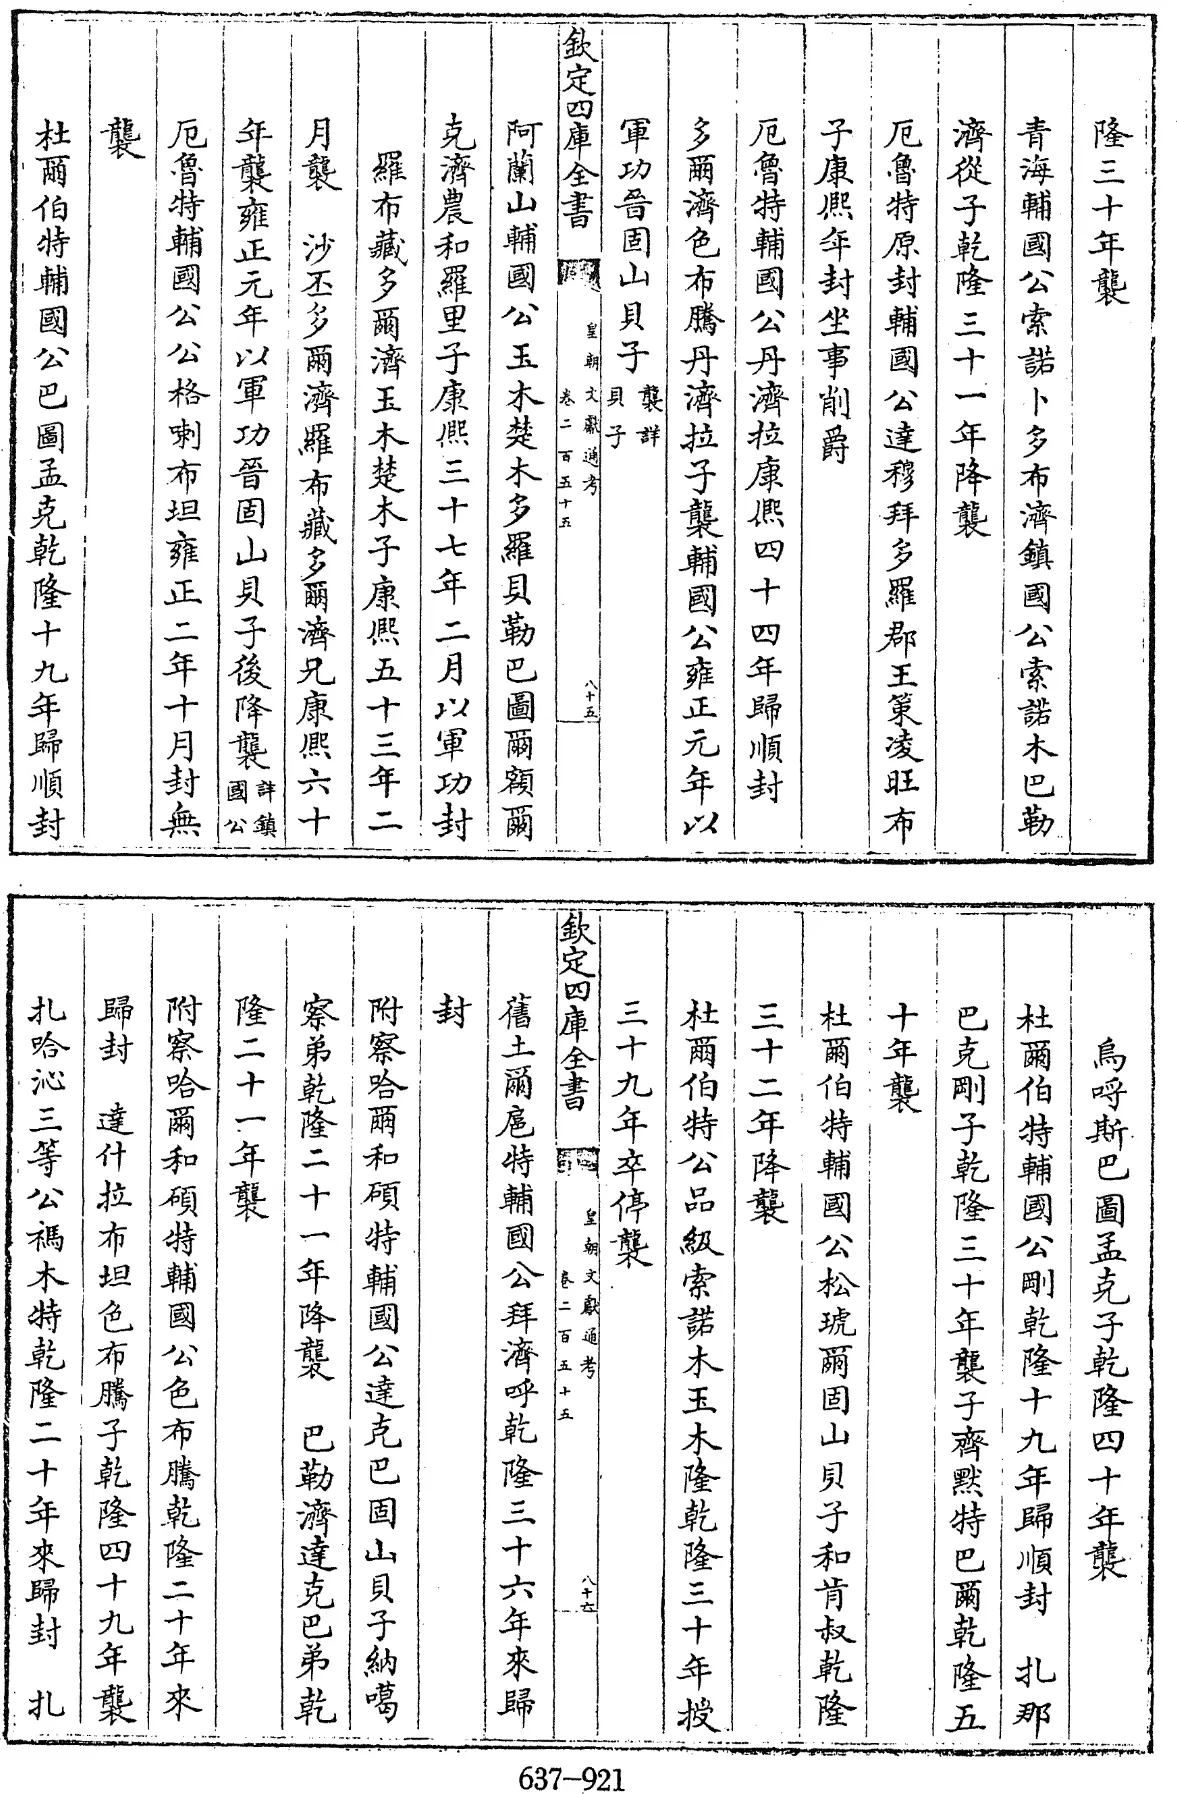 隆三十年襲
青海輔國公索諾卜多布濟鎮國公索諾木巴勒
濟從子乾隆三十一年降襲
厄魯特原封輔國公達穆拜多羅郡王策凌旺布
子康熙年封坐事削爵
厄魯特輔國公丹濟拉康熙四十四年歸順封
多爾濟色布騰丹濟拉子襲輔國公雍正元年以
軍功晉固山貝子襲詳貝子
欽定四庫全書
皇朝文獻通考
卷二百五十五
八十五
阿蘭山輔國公玉木楚木多羅貝勒巴圖爾額爾
克濟農和羅里子康熙三十七年二月以軍功封
羅布藏多爾濟玉木楚木子康熙五十三年二
月襲 沙丕多爾濟羅布藏多爾濟兄康熙六十
年襲雍正元年以軍功晉固山貝子後降襲詳鎮國公
厄魯特輔國公公格喇布坦雍正二年十月封無
襲
杜爾伯特輔國公巴圖孟克乾隆十九年歸順封
烏呼斯巴圖孟克子乾隆四十年襲
杜爾伯特輔國公剛乾隆十九年歸順封 扎那
巴克剛子乾隆三十年襲子齊默特巴爾乾隆五
十年襲
杜爾伯特輔國公松琥爾固山貝子和肯叔乾隆
三十二年降襲
杜爾伯特公品級索諾木玉木隆乾隆三十年授
三十九年卒停襲
欽定四庫全書
皇朝文獻通考
卷二百五十五
八十六
舊土爾扈特輔國公拜濟呼乾隆三十六年來歸
封
附察哈爾和碩特輔國公達克巴固山貝子納噶
察弟乾隆二十一年降襲 巴勒濟達克巴弟乾
隆二十一年襲
附察哈爾和碩特輔國公色布騰乾隆二十年來
歸封 達什拉布坦色布騰子乾隆四十九年襲
扎哈沁三等公禡木特乾隆二十年來歸封 扎
637-921